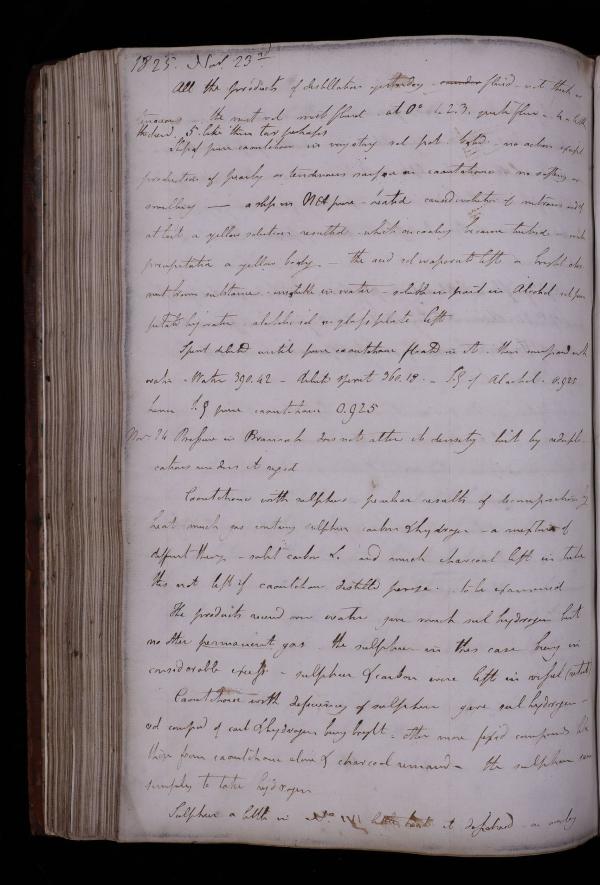 1825. Nov 23rd
All the products of distillation yesterday fluid - not thick or
tenacious - the most vol most fluid at 0° quite fluid - 4 a little
thickened. 5. like thin tar perhaps
Slip of pure caoutchouc in very strong sul pot - no action except
production of pearly or tenderness on caoutchouc - no softening or
smelling — a slip in Nit pure - heated considerable of nitrous acid
at last a yellow solution resulted which on cooling became turbid - with
precipitation a yellow body - the acid sol evaporated left a bright
brown substance - insoluble in water - soluble in part in Alcohol and
by water - alcoholic sol on glass plate left
Spirit diluted until pure caoutchouc floated in it - then compared with
water - Water 390.42 - dilute spirit 360.18 - S.g of Alcohol 0.925
hence S.g pure caoutchouc 0.925
Nov 24 Pressure in Bramah does not alter its density but by
renders it rigid
Caoutchouc with sulphur - peculiar results of decomposition by
heat much gas containing sulphur carbon & hydrogen - a mixture of
different things - solid carbon &c and much charcoal left in tube
this not left if caoutchouc distilled per se - to be examined
The products received over water gave much sul hydrogen but
no other permanent gas - the sulphur in this case being in
considerable excess - sulphur & carbon were left in vessel (retort)
Caoutchouc with deficiency of sulphur gave sul hydrogen -
vol compd of carb & hydrogen being bright - other more fixed compounds like
those from caoutchouc alone & charcoal remained - the sulphur
simply to take hydrogen
Sulphur a little in No. it dissolved - on